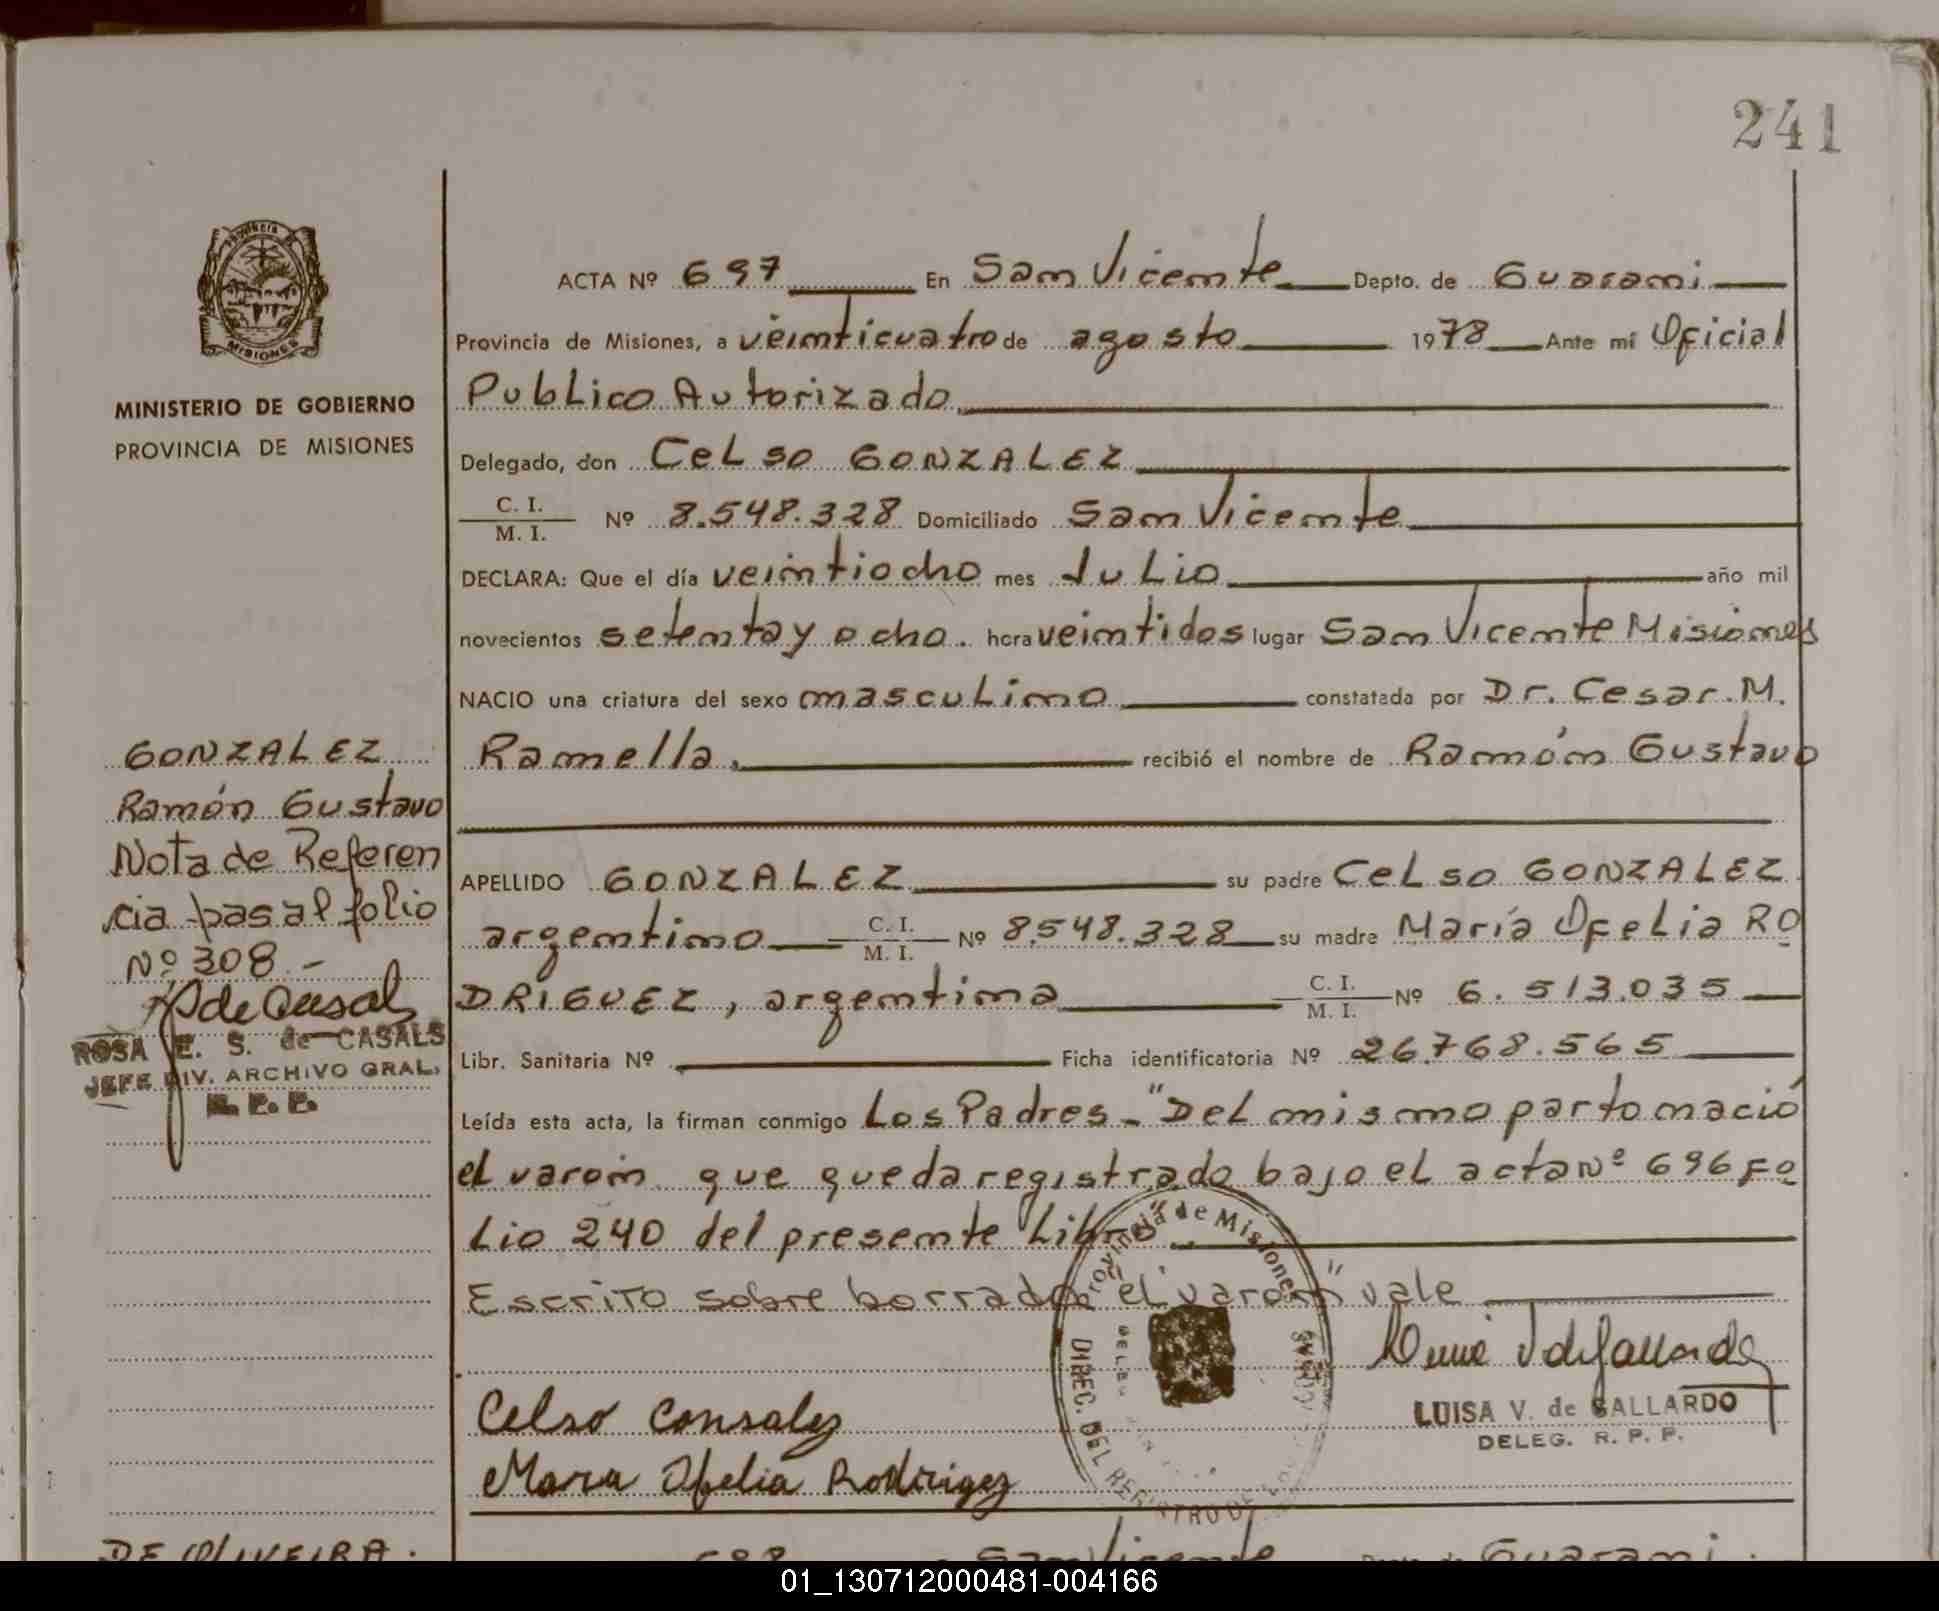 241
PROVINCIA DE
MISIONES
MINISTERIO DE GOBIERNO
PROVINCIA DE MISIONES
ACTA Nº 697 En San Vicente Depto. de Guarani
Provincia de Misiones, a veinticuatro de agosto 1978 Ante mí Oficial
Publico Autorizado
Delegado, don Celso GONZALEZ
C. I.
M. I. Nº 8.548.328 Domiciliado San Vicente
DECLARA: Que el día veintiocho mes Julio año mil
novecientos setenta y ocho. hora veintidos lugar San Vicente Misiones
NACIO una criatura del sexo masculino constatada por Dr. Cesar. M.
Ramella, recibió el nombre de Ramón Gustavo
APELLIDO GONZALEZ su padre Celso GONZALEZ
argentino C. I. M. I. Nº 8.548.328 su madre María Ofelia RO
DRIGUEZ, argentina C. I. M. I. Nº 6.513.035
Libr. Sanitaria Nº Ficha identificatoria Nº 26.768.565
Leída esta acta, la firman conmigo Los Padres - "Del mismo parto nació
el varon que queda registrado bajo el acta Nº 696 Fo
Lio 240 del presente Libro"
Escrito sobre borrado "el varon" vale
Celso Consalez
Mara Ofelia Rodrigez
LUISA V. de GALLARDO
DELEG. R. P. P.
Provincia de Misiones
DIREC. DEL REGISTRO DE
GONZALEZ
Ramón Gustavo
Nota de Referen
cia pasa al folio
Nº 308 -
ROSA E. S. de CASALS
JEFE DIV. ARCHIVO GRAL.
R. P. P.
DE OLIVEIRA.
698 San Vicente Depto. de Guarani
01_130712000481-004166